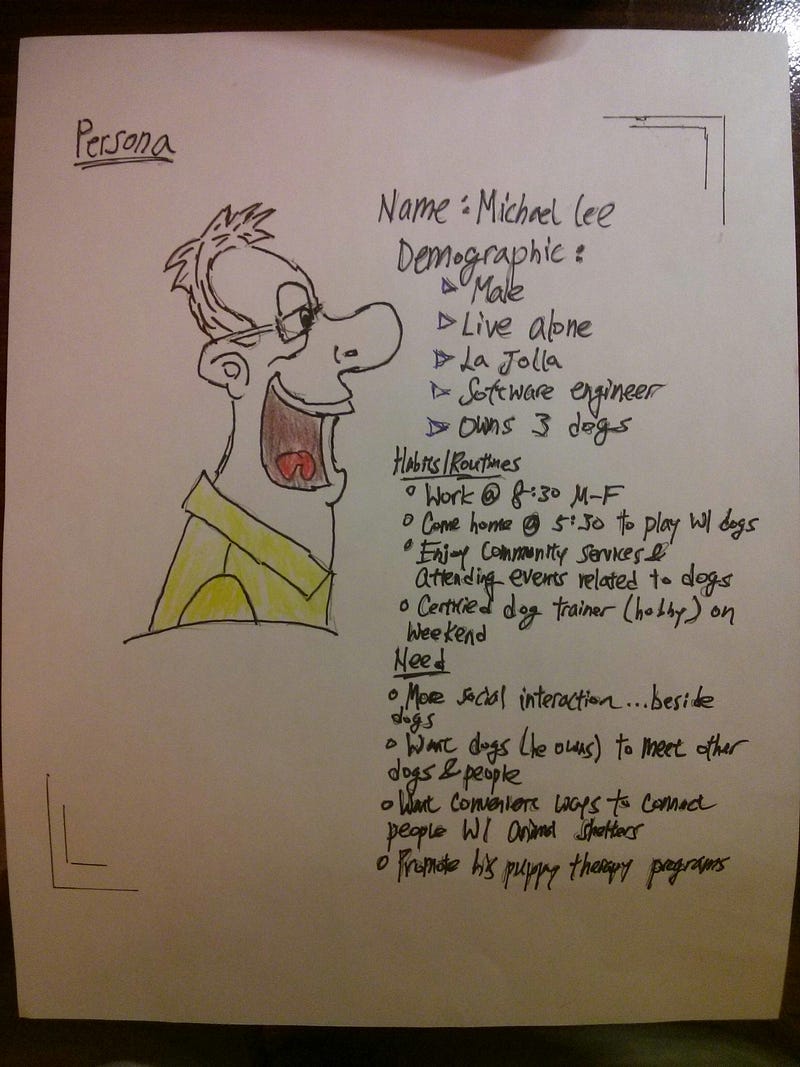 Persona
Name : Michael Lee
Demographic :
Male
Live alone
La Jolla
Software engineer
Owns 3 dogs
Habits/Routines
Work @ 8:30 M-F
Come home @ 5:30 to play W/ dogs
Enjoy Community services &
Attending events related to dogs
Certified dog trainer (hobby) on
Weekend
Need
More social interaction...beside
dogs
Want dogs (he owns) to meet other
dogs & people
Want convenient ways to connect
people W/ Animal shelters
Promote his puppy therapy programs